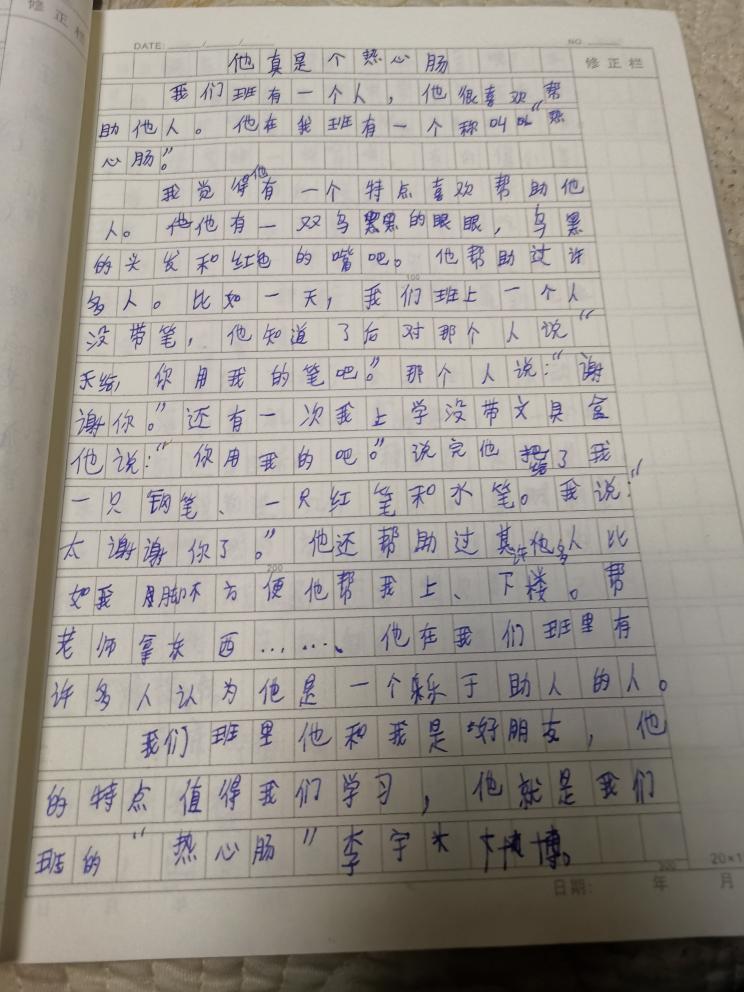 修正栏
DATE: / /
NO
他真是个热心肠
修正栏
我们班有一个人，他很喜欢帮
助他人。他在我班有一个称叫"热
心肠"。
我觉得他有一个特点喜欢帮助他
人。他有一双乌黑的眼眼，乌黑
的头发和红色的嘴吧。他帮助过许
多人。比如一天，我们班上一个人
没带笔，他知道了后对那个人说"
给，你用我的笔吧。"那个人说："谢
谢你。"还有一次我上学没带文具盒
他说："你用我的吧。"说完他给了我
一只钢笔、一只红笔和水笔。我说："
太谢谢你了。"他还帮助过其他许多人比
如我脚不方便他帮我上、下楼。帮
老师拿东西……、他在我们班里有
许多人认为他是一个乐于助人的人。
我们班里他和我是好朋友，他
的特点值得我们学习，他就是我们
班的"热心肠"李宇博。
100
200
300
20×1
日期： 年 月